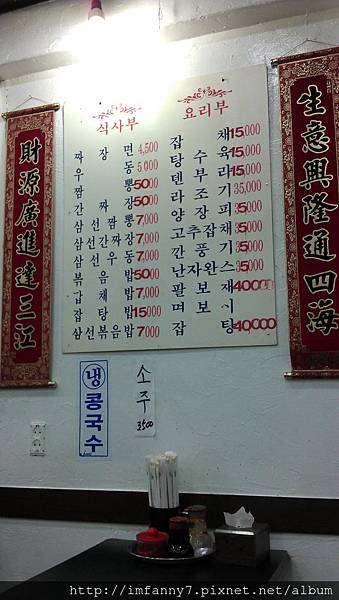 財源廣進達三江
生意興隆通四海
식사부
짜장면 4,500
우동 5000
짬뽕 5000
간짜장 5000
삼선짬뽕 7,000
삼선간짜장 7,000
삼선우동 7,000
볶음밥 5000
잡채밥 7,000
잡탕밥 15000
삼선볶음밥 7000
요리부
잡채 15,000
탕수육 15,000
덴부라 15,000
라조기 35,000
양장피 35,000
고추잡채 35,000
깐풍기 35,000
난자완스 35,000
팔보채 40000
잡탕 40,000
냉콩국수
소주
3500
http://imfanny7.pixnet.net/album